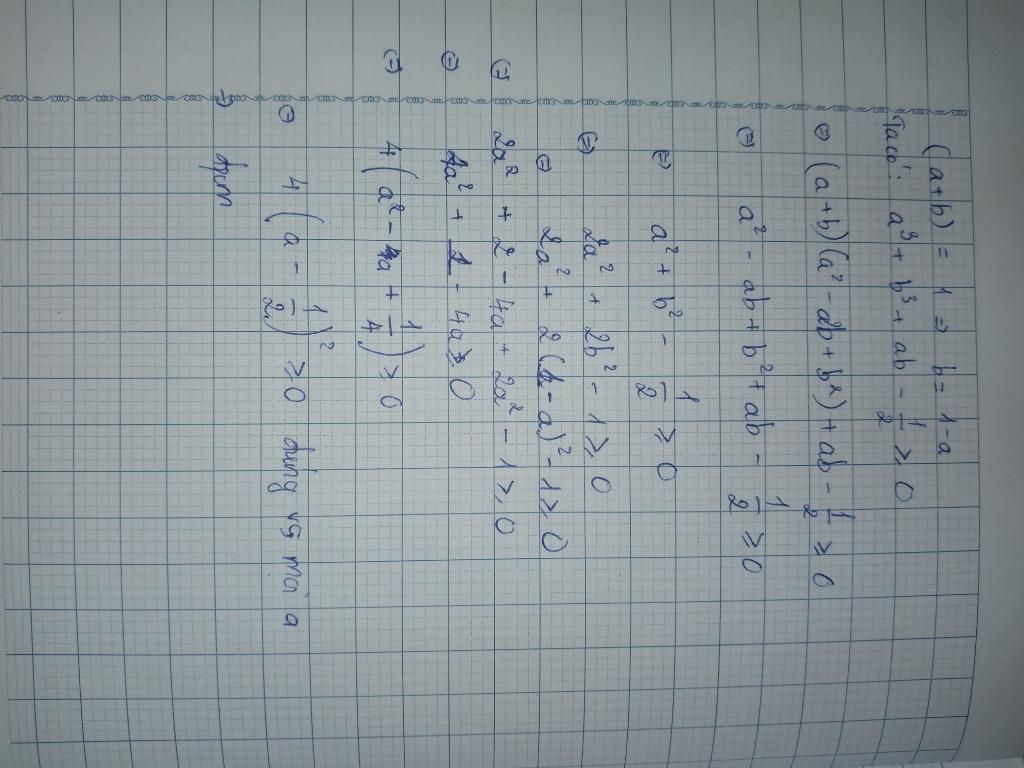 (a+b) = 1 => b = 1-a
Ta có: a³ + b³ + ab - 1/2 ≥ 0
⇔ (a+b)(a² - ab + b²) + ab - 1/2 ≥ 0
⇔ a² - ab + b² + ab - 1/2 ≥ 0
⇔ a² + b² - 1/2 ≥ 0
⇔ 2a² + 2b² - 1 ≥ 0
⇔ 2a² + 2(1-a)² - 1 ≥ 0
⇔ 2a² + 2 - 4a + 2a² - 1 ≥ 0
⇔ 4a² + 1 - 4a ≥ 0
⇔ 4(a² - a + 1/4) ≥ 0
⇔ 4(a - 1/2)² ≥ 0 đúng vs mọi a
→ đpcm